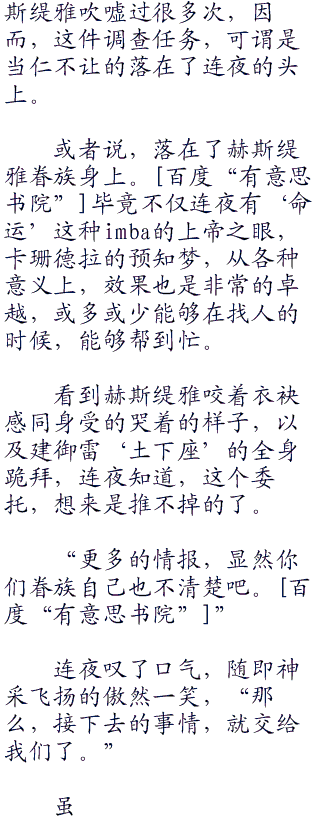 斯缇雅吹嘘过很多次，因
而，这件调查任务，可谓是
当仁不让的落在了连夜的头
上。
或者说，落在了赫斯缇
雅眷族身上。[百度“有意思
书院”]毕竟不仅连夜有‘命
运’这种imba的上帝之眼，
卡珊德拉的预知梦，从各种
意义上，效果也是非常的卓
越，或多或少能够在找人的
时候，能够帮到忙。
看到赫斯缇雅咬着衣袂
感同身受的哭着的样子，以
及建御雷‘土下座’的全身
跪拜，连夜知道，这个委
托，想来是推不掉的了。
“更多的情报，显然你
们眷族自己也不清楚吧。[百
度“有意思书院”]”
连夜叹了口气，随即神
采飞扬的傲然一笑，“那
么，接下去的事情，就交给
我们了。”
虽